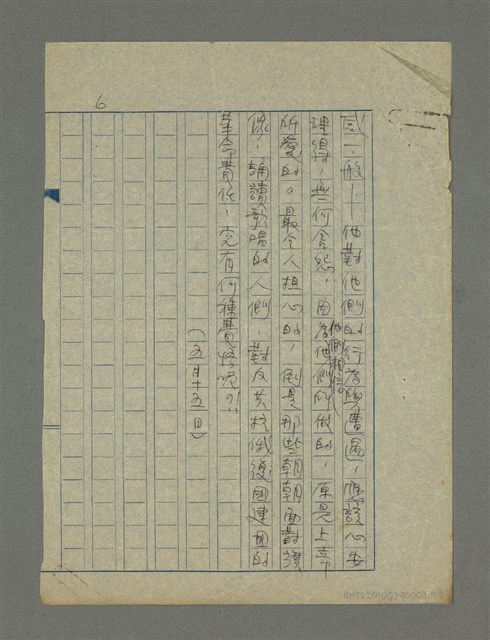 6
感一般——他對他們的行爲與遭遇,應該心安
理得,無何含怨,因爲他們相信他們所做的,原是上帝
所愛的。最令人担心的,倒是那些朝朝面對須
像,誦讀歌唱的人們,對反共抗俄復國建國的
革命責任,究有何種貢獻呢?!
(五月十五日)